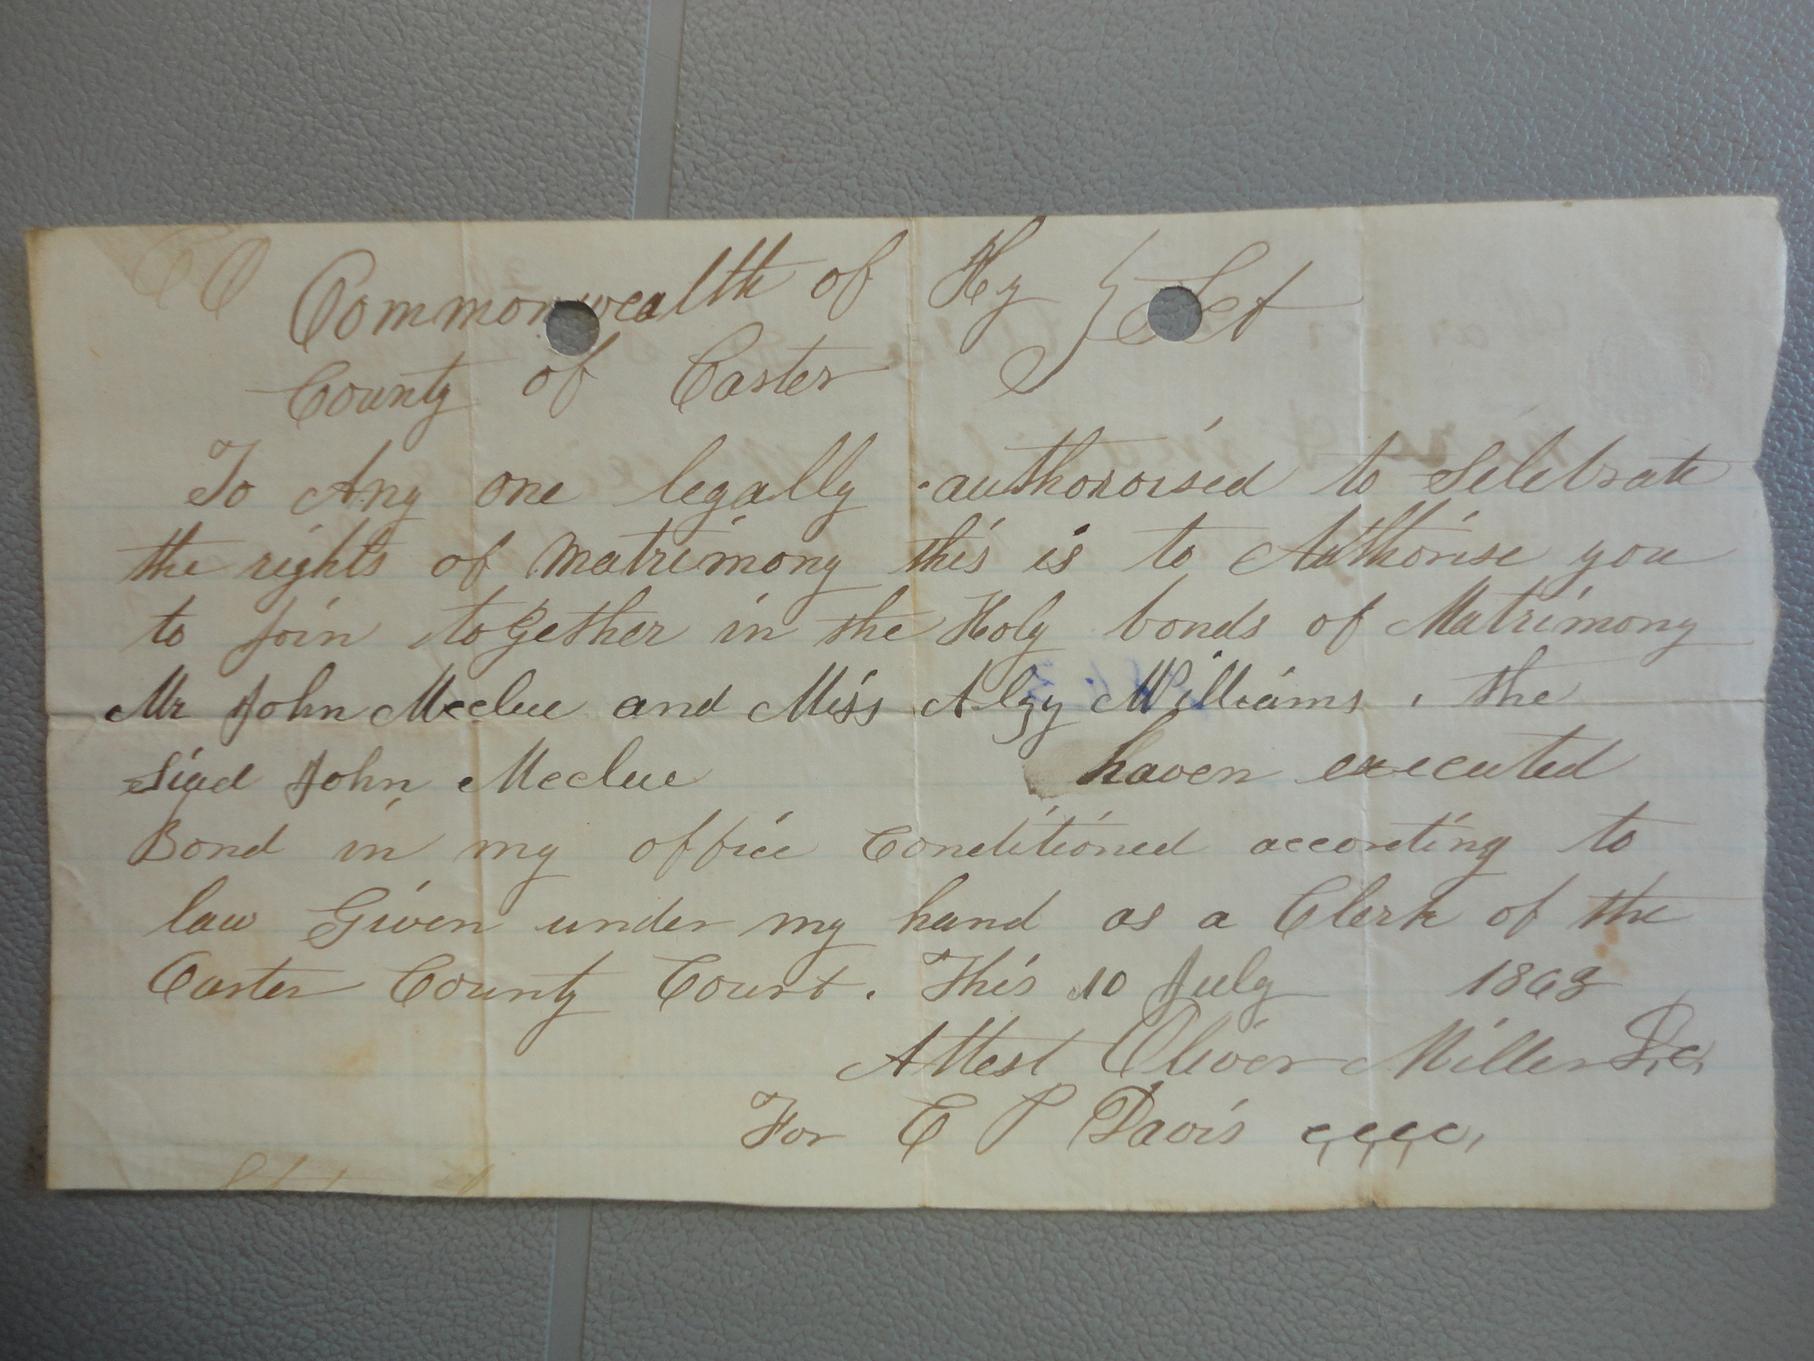 Commonwealth of Ky } Sct
County of Carter
To Any one legally authoroised to Selebrate
the rights of Matrimony this is to Authorise you
to Join together in the Holy bonds of Matrimony
Mr John Mcclue and Miss Alzy Williams, the
Siad John Mcclue haven executed
Bond in my office Conditioned according to
law Given under my hand as a Clerk of the
Carter County Court. This 10 July 1868
Attest Oliver Miller D,C,
For C P Davis C,C,C,C,